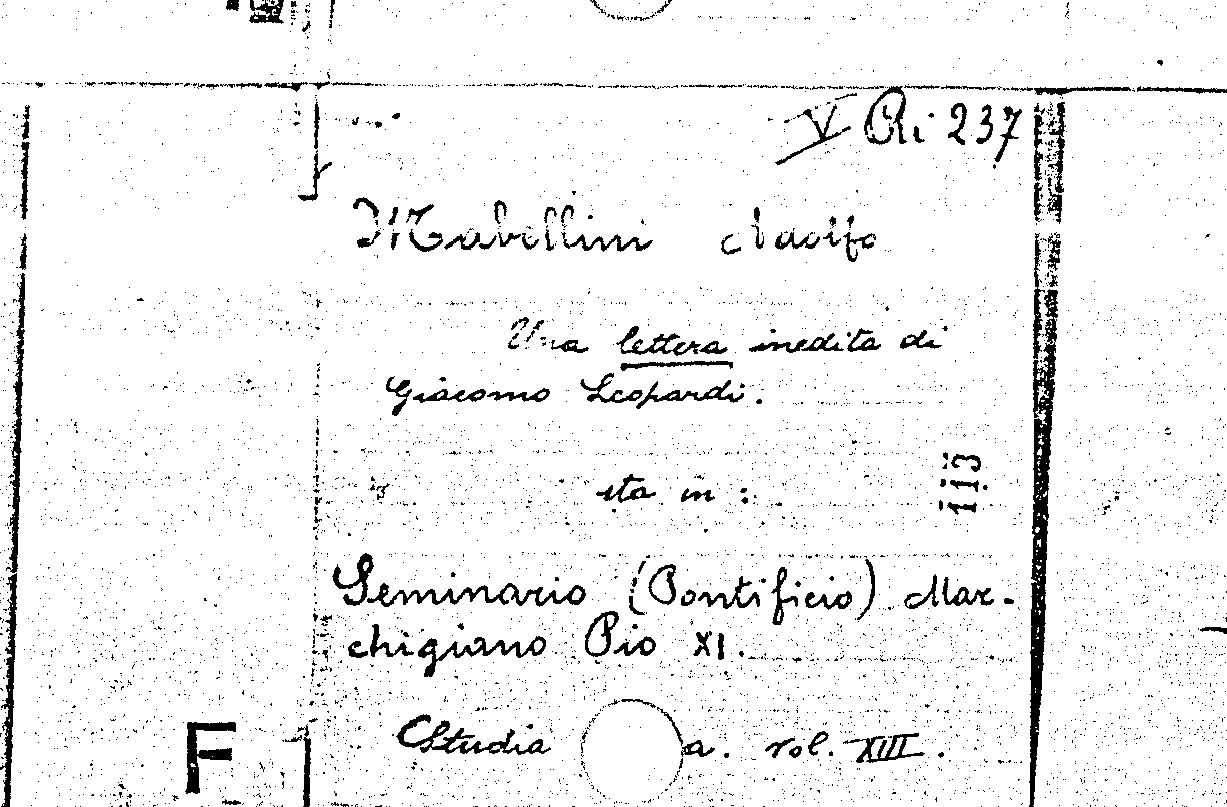 V Ri 237
Mabellini Adolfo
Una lettera inedita di
Giacomo Leopardi.
sta in :
113
Seminario (Pontificio) Mar-
chigiano Pio XI.
Studia a. vol. XIII.
F